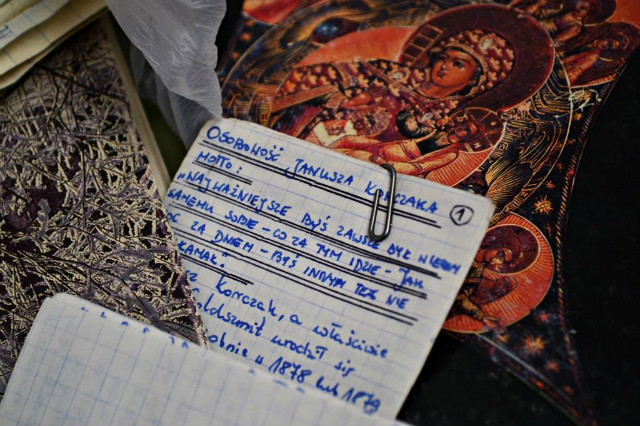 OSOBOWOŚĆ JANUSZA KORCZAKA
MOTTO: 1
„NAJWAŻNIEJSZE BYŚ ZAWSZE BYŁ WIERNY
SAMEMU SOBIE – CO ZA TYM IDZIE – JAK
OC ZA DNIEM – BYŚ INNYM TEŻ NIE
KŁAMAŁ"
sz Korczak, a właściwie
oldszmit urodził się
obnie w 1878 lub 1879